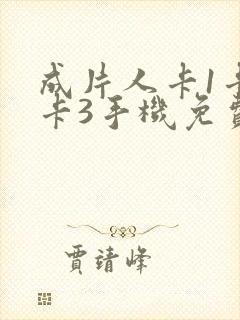 成片人卡1卡
卡3手機免費
賈靖峰